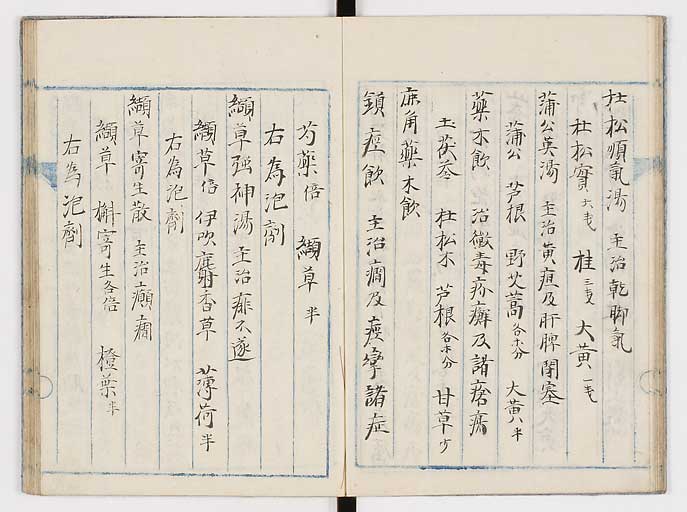 杜松順氣湯 主治乾脚氣
杜松實 六戋 桂 三戋 大黄 一戋
蒲公英湯 主治黄疸及肝脾閉塞
蒲公 芦根 野艾蒿 各等分 大黄 半
藥木飲 治黴毒疥癬及諸瘡瘍
土茯苓 杜松木 芦根 各等分 甘草 少
鹿角藥木飲
鎮痙飲 主治癇及痙攣諸症
芍藥 倍 纈草 半
右為泡劑
纈草強神湯 主治癱不遂
纈草 倍 伊吹麝香草 薄荷 半
右為泡劑
纈草寄生散 主治癲癇
纈草 槲寄生 各倍 橙葉 半
右為泡劑